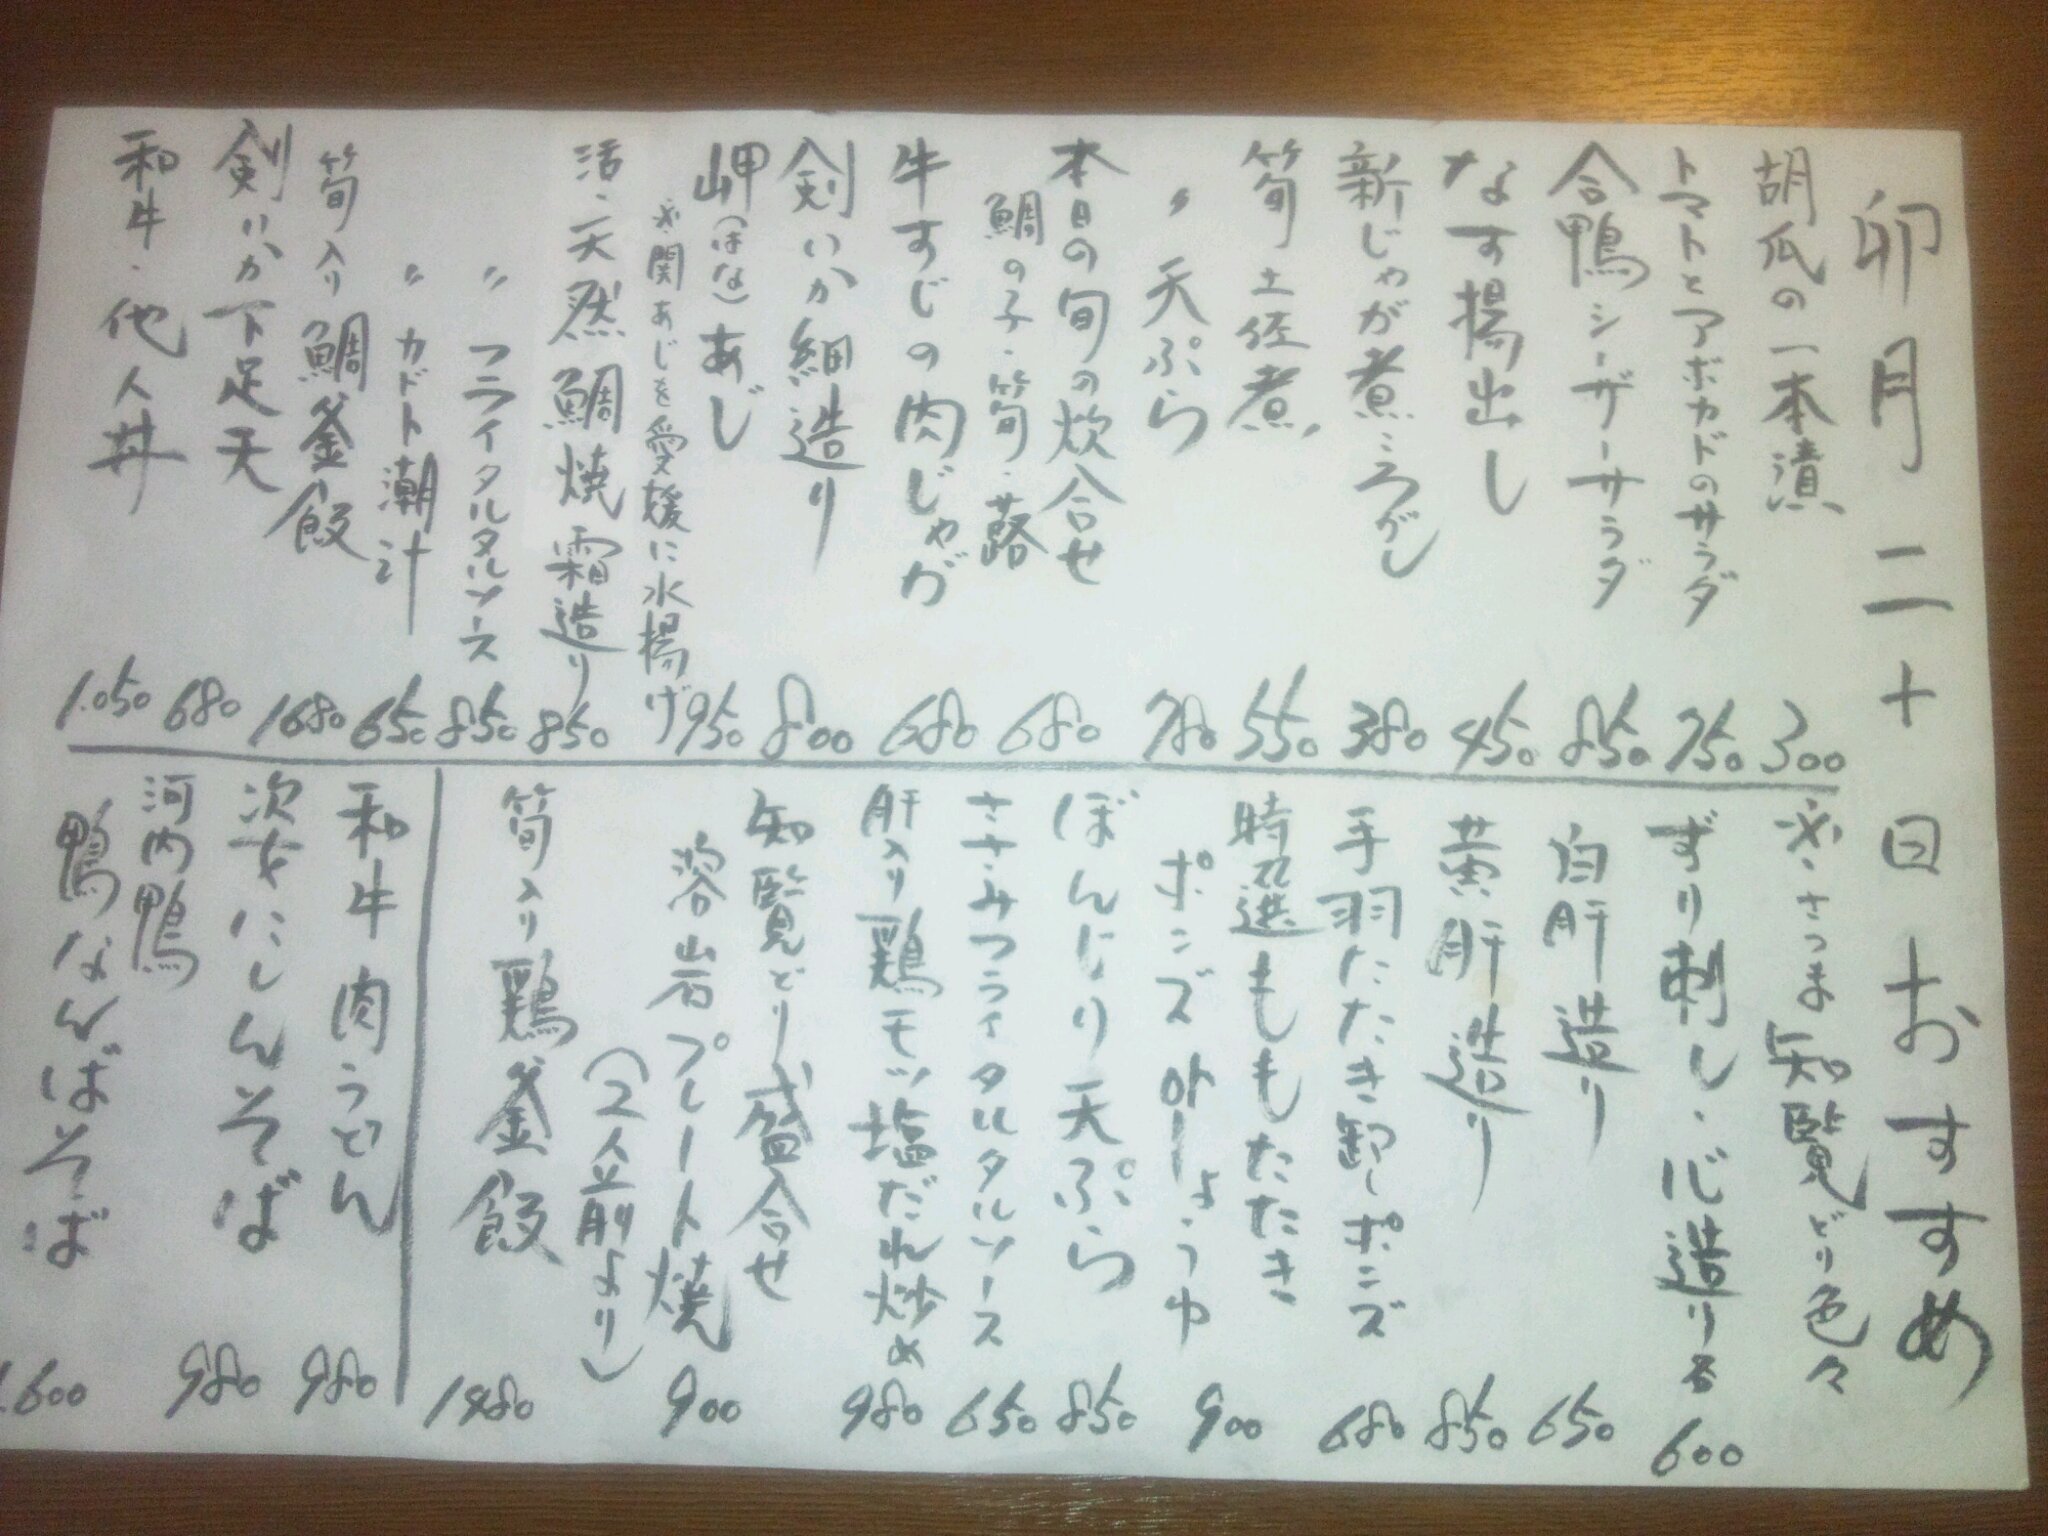 卯月二十日おすすめ
胡瓜の一本漬 300
トマトとアボカドのサラダ 750
合鴨シーザーサラダ 850
なす揚出し 450
新じゃが煮ころがし 380
筍土佐煮 550
〃天ぷら 780
本日の旬の炊合せ
鯛の子・筍・蕗 680
牛すじの肉じゃが 680
剣いか細造り 800
岬(はな)あじ 950
※関あじを愛媛に水揚げ
活・天然鯛焼霜造り 850
〃フライタルタルソース 850
〃カブト潮汁 650
筍入り鯛釜飯 1680
剣いか下足天 680
和牛・他人丼 1.050
※さつま知覧どり色々
ずり刺し・心造り各 600
白肝造り 650
黄肝造り 850
手羽たたき卸しポンズ 680
時選ももたたき
ポンズorしょうゆ 900
ぼんじり天ぷら 850
ささみフライタルタルソース 650
肝入り鶏モツ塩だれ炒め 980
知覧どり盛合せ
溶岩プレート焼 900
(2人前より)
筍入り鶏釜飯 1480
和牛肉うどん 980
次女にしんそば 980
河内鴨
鴨なんばそば 1.600